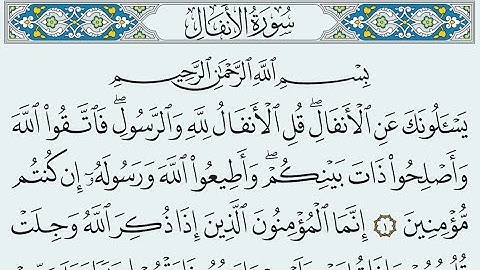 سُورَةُ الأَنفَالِ
بِسْمِ اللَّهِ الرَّحْمَٰنِ الرَّحِيمِ
يَسْـَٔلُونَكَ عَنِ الْأَنفَالِ ۖ قُلِ الْأَنفَالُ لِلَّهِ وَالرَّسُولِ ۖ فَاتَّقُوا۟ اللَّهَ
وَأَصْلِحُوا۟ ذَاتَ بَيْنِكُمْ ۖ وَأَطِيعُوا۟ اللَّهَ وَرَسُولَهُۥٓ إِن كُنتُم
مُّؤْمِنِينَ ١ إِنَّمَا الْمُؤْمِنُونَ الَّذِينَ إِذَا ذُكِرَ اللَّهُ وَجِلَتْ